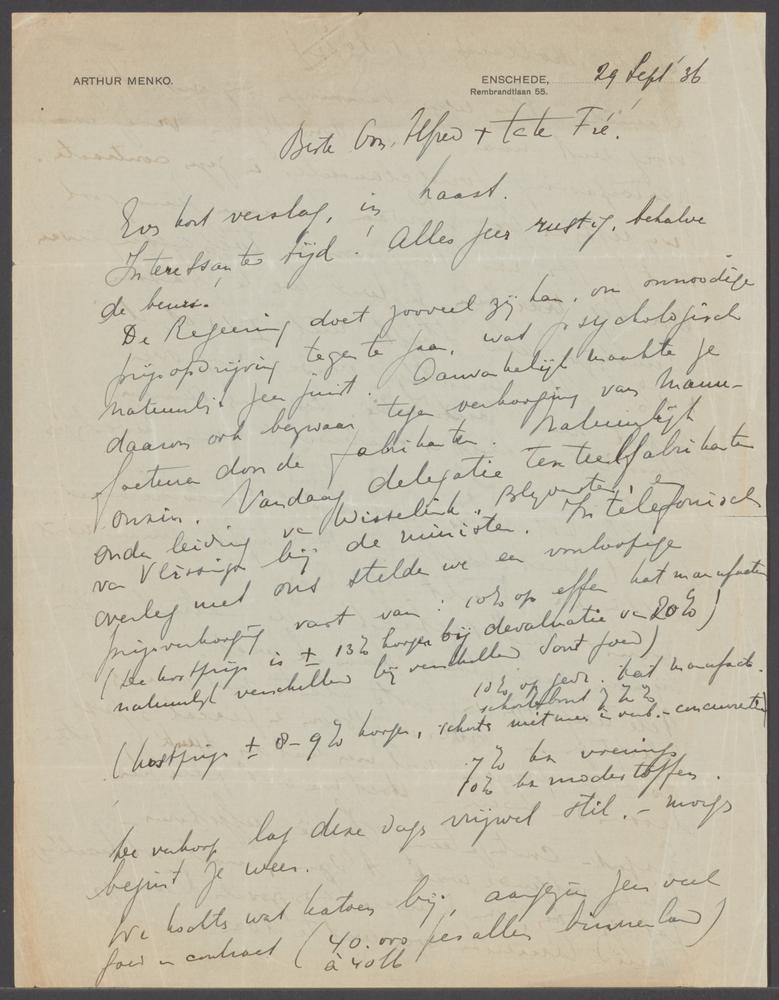 ARTHUR MENKO.
ENSCHEDE, 29 Sept '36
Rembrandtlaan 55.
Beste Om Alfred + tante Fré!
Even kort verslag, in haast.
Interessante tijd! Alles zeer rustig, behalve
de beurs.
De Regeering doet zooveel zij kan, om onnoodige
prijsopdrijving tegen te gaan, wat psychologisch
natuurlijk zeer juist. Aanvankelijk maakte ze
daarom ook bezwaar tegen verhooging van manu-
facturen door de fabrikanten. Natuurlijk
onzin. Vandaag delegatie textielfabrikanten
onder leiding v. Wisselink, Blijdenstein en
van Vlissingen bij de minister. In telefonisch
overleg met ons stelden we een voorloopige
prijsverhooging vast van: 10% op effen kat. manufacturen
(De kostprijs is ± 13% hooger bij devaluatie van 20%)
natuurlijk verschillend bij verschillende soort goed)
10% op gedr. kat. manufact.
schortebont 7 1/2 %
(kostprijs ± 8-9% hooger, schorts niet meer i. verb. - concurrentie)
7% bn voerings
10% bn modestoffen.
De verkoop lag deze dagen vrijwel stil. - morgen
begint ze weer.
We kochten wat katoen bij, aangezien zeer veel
goed in contract (40.000 pes alleen binnenland)
à 40 lb